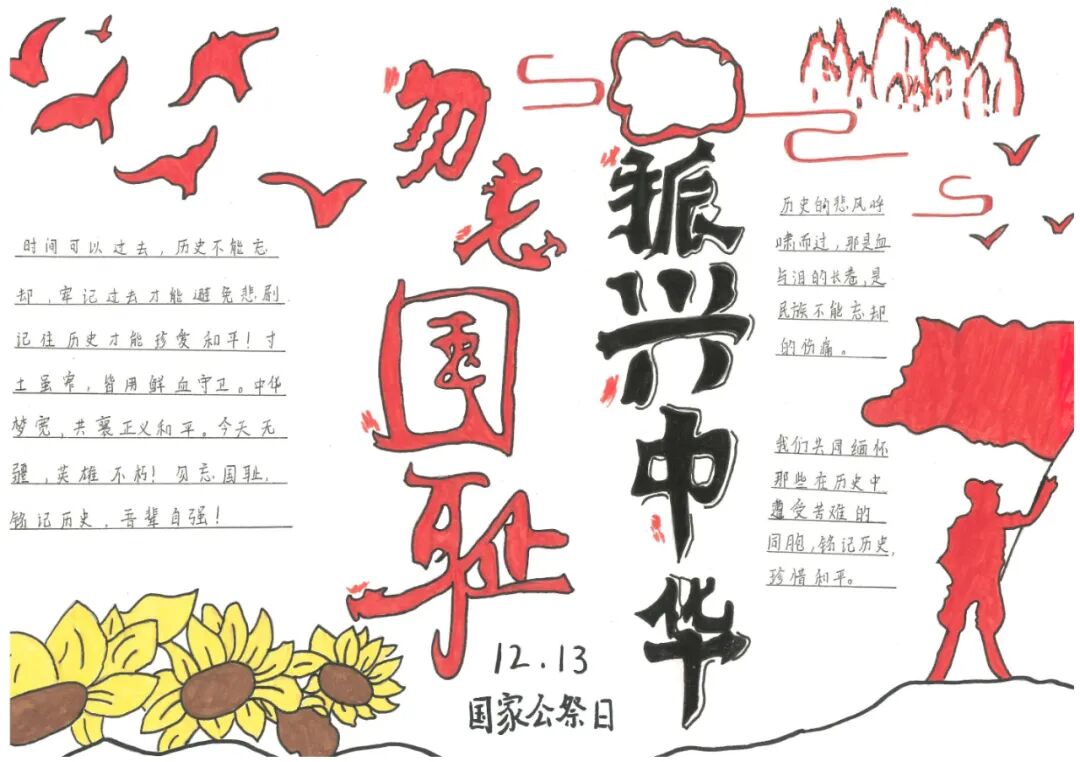 时间可以过去，历史不能忘
却，牢记过去才能避免悲剧
记住历史才能珍爱和平！寸
土虽窄，皆用鲜血守卫。中华
梦宽，共襄正义和平。今天无
疆，英雄不朽！勿忘国耻，
铭记历史，吾辈自强！
勿忘国耻
振兴中华
12.13
国家公祭日
历史的悲风呼
啸而过，那是血
与泪的长卷，是
民族不能忘却
的伤痛。
我们共同缅怀
那些在历史中
遭受苦难的
同胞，铭记历史，
珍惜和平。